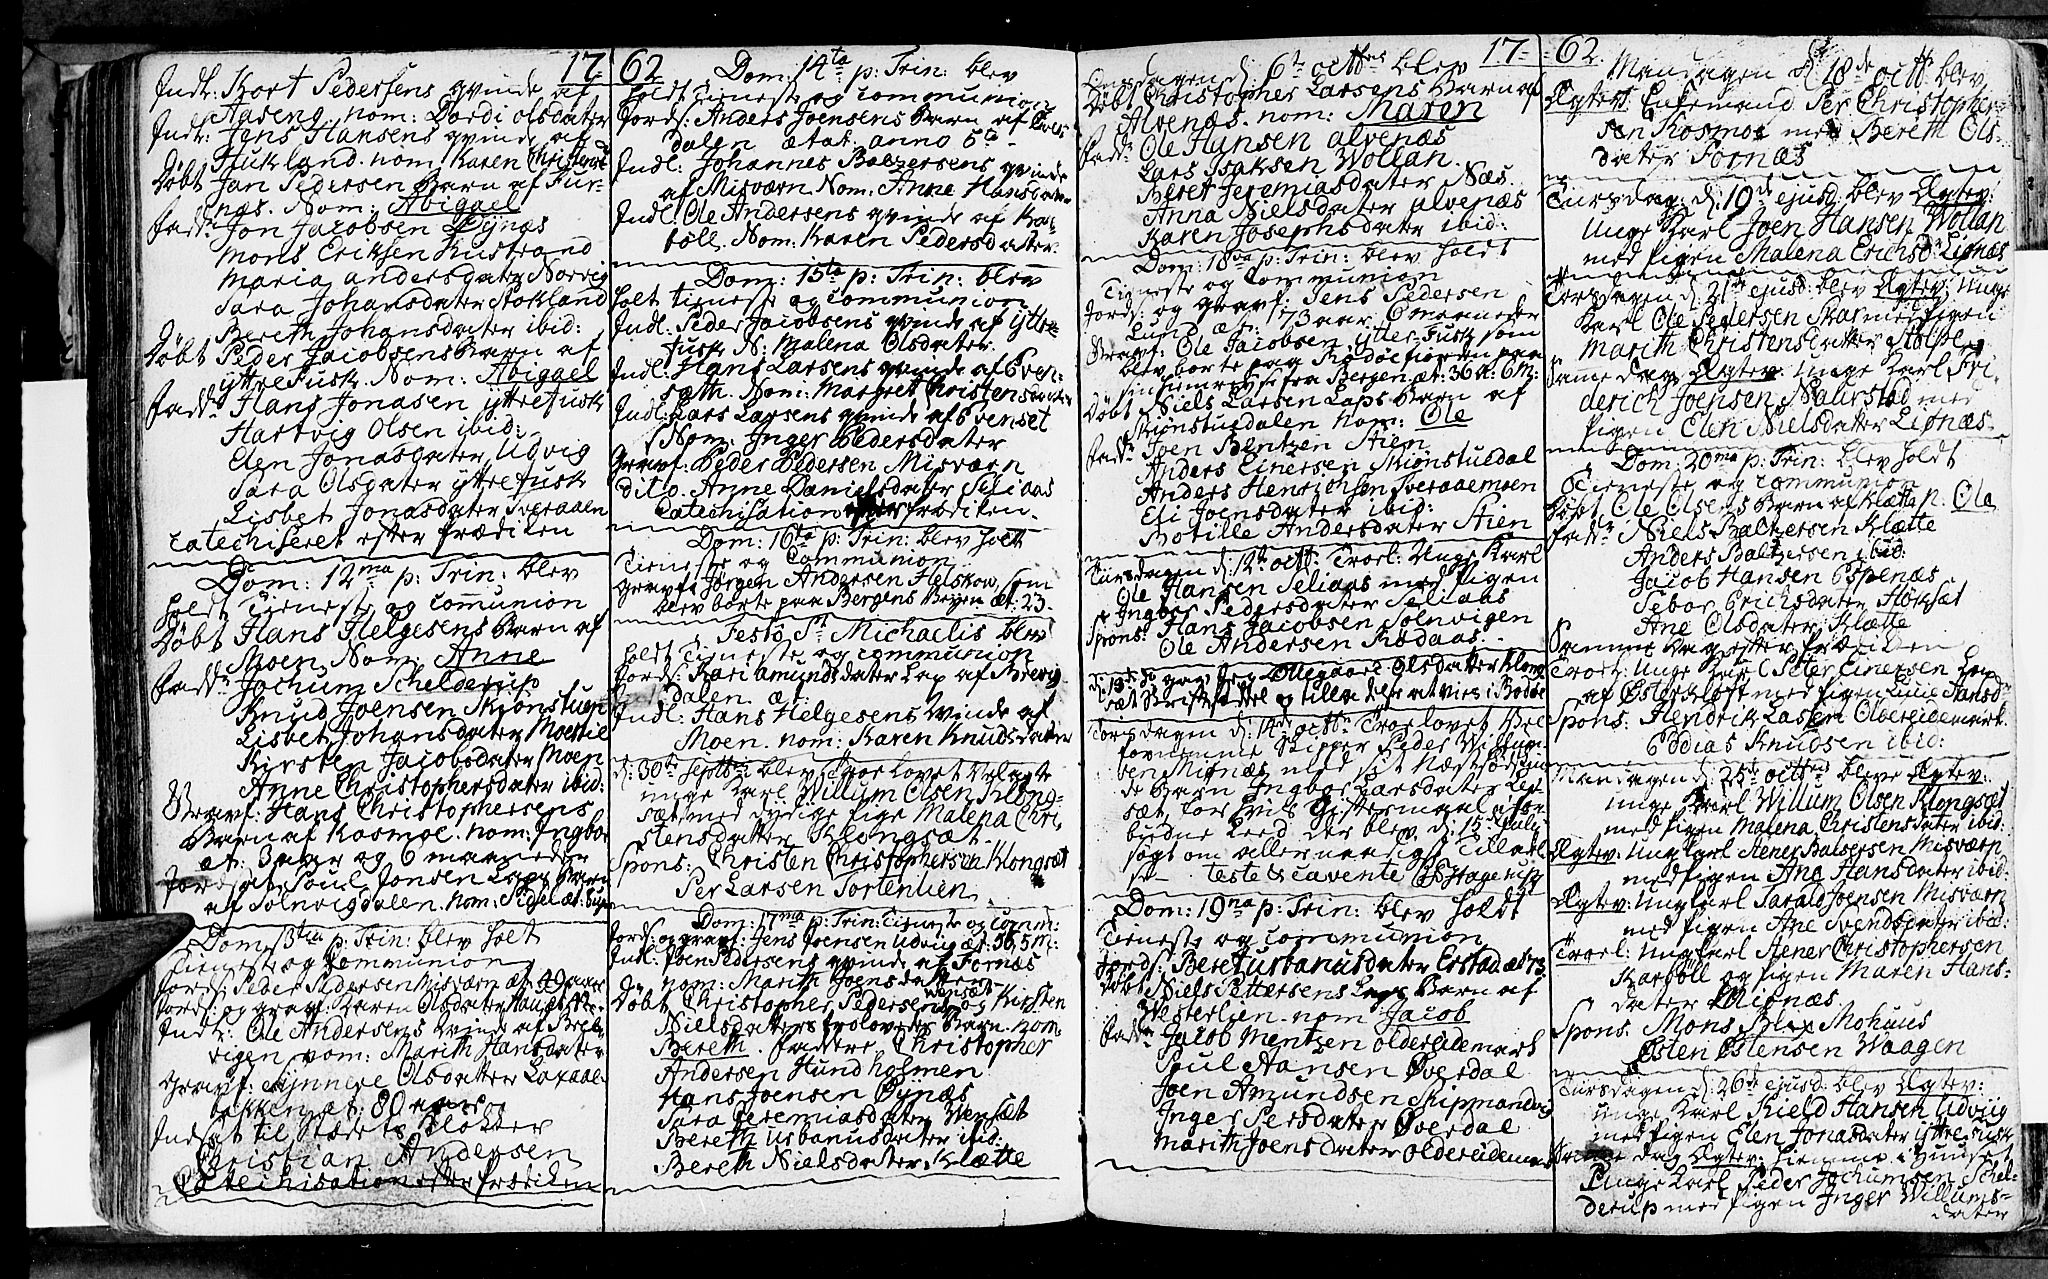 17 62
Indl: Kort Pedersens qvinde af
Aaseng nom: Dordi olsdater
Indl: Jens Hansens qvinde af
Fuskland. nom Karen Christensd
Døbt Jan Pedersen Barn af Fur-
næs. Nom: Abigael
Fadd: Jon Jacobsen Øynæs
Mons Eriksen Kustrand
Maria andersdater Norvig
Sara Johansdater Stokland
Bereth Johansdater ibid:
Døbt Peder Jacobsens Barn af
yttre Fusk. Nom: Abigael
Fadd: Hans Jonasen yttre fusk
Hartvig Olsen ibid:
Elen Jonasdater Udvig
Sara Olsdater yttre fusk
Lisbet Jonasdater Sveraaen
catechiseret efter Prædiken
Dom: 12ma p: Trin: blev
holdt Tieneste og Communion
Døbt Hans Helgesens Barn af
Moen Nom: Anne
Fadd: Jochum Schelderup
Knud Joensen Skiønstuen
Lisbet Johansdater Moestie
Kirsten Jacobsdater Moen
Anne Christophersdater ibid:
Begravf: Hans Christophersens
Barn af Kosmoe. nom: Ingbor
æt: 3 aar og 6 maaneder
Jords: Poul Jonsen Laps Barn
af Solvigdalen. nom:
Dom: 13tia p: Trin: blev holt
Tieneste og Communion
Jords: Peder Pedersen Misværn æt: 49 aar
Jords: og gravf: Karen Olsdater
Indl: Ole Andersens Qvinde af Brek-
vigen nom: Marith Hansdater
Gravf: Synneve Olsdatter Laxaae-
bakken æt: 80 aar
Indsat til Stædets Klokker
Christian Andersen
Catechisation efter Prædiken
Dom: 14ta p: Trin: blev
holdt Tieneste og communion
Jords: Anders Joensens Barn af
dalen ætat: anno 5to
Indl: Johannes Baltzersens qvinde
af Misværn Nom: Anne Hansdater
Indl: Ole Andersens qvinde af Kar-
bøll. Nom: Karen Pedersdater
Dom: 15ta p: Trin: blev
holt tieneste og communion
Indl: Peder Jacobsens qvinde af yttre
Fusk N: Malena Olsdater
Indl: Hans Larsens qvinde af Even-
sæth. Nom: Margret Christensdater
Indl: Lars Larsens qvinde af Evenset
Nom: Inger Pedersdater
Gravf: Peder Pedersen Misværn
dito. Anne Danielsdater Seliaas
Catechisation efter Prædiken
Dom: 16ta p: Trin: blev holt
Tieneste og Communion
Gravf: Jørgen Andersen Helskow, som
blev borte paa Bergens Reyen æt: 23
Festo St Michaelis blev
holdt Tieneste og communion
Jords: Kari Amundsdater Lap af Brevig
dalen æt:
Indl: Hans Helgesens Qvinde af
Moen. nom: Karen Knudsdater
d: 30te Septbr: blev Troelovet Velagte
unge Karl Willum Olsen Klong-
sæt med dydige Pige Malena Chri-
stensdatter Klongsæt
Spons: Christen Christophersen Klongsæt
Per Larsen Tortenlien
Dom: 17ma p: Trin: Tieneste og Comm:
Jords: og gravf: Jens Joensen Udvig æt: 56, 5 m:
Indl: Joen Pedersens qvinde af Fornæs
nom: Marith Joensdatter
Døbt Christopher Pedersen Wensæt og Kirsten
Nielsdaters trolovedes Barn. nom.
Bereth. Faddere Christopher
Andersen Hundholmen
Hans Joensen Øynæs
Sara Jeremiasdater Wensæt
Bereth Urbanusdater ibid:
Bereth Nielsdater Klætte
17 62.
Onsdagen d: 6te octbris blev
Døbt Christopher Larsens Barn af
Alvenæs. nom: Maren
Fadd: Ole Hansen alvenæs
Lars Isaksen Wollan.
Beret Jeremiasdater Næs.
Anna Nielsdater alvenæs
Karen Josephsdater ibid:
Dom: 18va p: Trin: blev holdt
Tieneste og Communion
Jords: og gravf: Jens Pedersen
Lund æt: 73 aar 6 maaneder
Gravf: Ole Jacobsen ytter Fusk som
blev borte paa Rødøefiorden paa
sin hiemreyse fra Bergen æt: 36 A: 6 M:
Døbt Niels Larsen Laps Barn af
Skiønstuedalen nom: Ole
Fadd: Joen Bentzen Stien
Anders Einersen Skiønstuedal
Anders Henrichsen Sveraaemoen
Eli Joensdater ibid:
Botille Andersdater Stien
Tirsdagen d: 12te octb: Troel: Unge Karl
Ole Hansen Seliaas med Pigen
Ingbor Pedersdater Seliaas
Spons: Hans Jacobsen Solvigen
Ole Andersen Rødaas
d: 13de gav jeg Ollegaard Olsdatter Klong
sæt Skriftseddel og tilladelse at vies i Bodøe
Torsdagen d: 14de octb: Troelovet Vel
fornemme Skipper Peder
ben Misnæs med sit Næstsødskin
de Barn Ingbor Larsdater Lei-
sæt, for hvis Giftermaal
budne Leed der blev d: 15de July
søgt om allernaadigst Tillad
se. Teste & cavente
Dom: 19na p: Trin: blev holdt
Tieneste og communion
Jords: Beret urbanusdater Erstad æt: 73
Døbt Niels Pettersens Laps Barn af
Westerlien. nom Jacob
Fadd: Jacob Mentzen oldereidemark
Poul Hansen Øverdal
Joen Amundsen Skipmandvig
Inger Persdater Øverdal
Marith Joensdater oldereidemark
Mandagen d: 18de octb: blev
Ægtev: Enkemand Per Christopher-
sen Kosmoe med Bereth Ols-
dater Fornæs
Tirsdag: d: 19de ejusd: blev Ægtev:
Unge Karl Joen Hansen Wollan
med Pigen Malena Erichsd: Leinæs
Torsdagen d: 21de ejusd: blev Ægtev: Unge
Karl Ole Pedersen Skar med Pigen
Marith Christensdatter Stolpe
Samme dag Ægtev: Unge Karl Fri-
derich Joensen Naurstad med
Pigen Elen Nielsdater Leinæs
Dom: 20ma p: Trin: blev holdt
Tieneste og communion
Døbt Ole Olsens Barn af Klætta N: Ole
Fadd: Niels Baltzersen Klætte
Anders Baltzersen ibid:
Jacob Hansen Espenæs
Sebor Erichsdater Høksæt
Ane Olsdater Klætte
Samme Dag efter Prædiken
Troel: Unge Karl Peter Einersen Lap
af Østerkløft med Pigen Lucie Hansd:
Spons: Hendrik Lassen Oldereidemark.
Eddias Knudsen ibid:
Mandagen d: 25de octbr: bleve Ægtev:
unge Karl Willum Olsen Klongsæt
med Pigen Malena Christensdater ibid:
Ægtev: Ungkarl Aener Baltzersen Misværn
med Pigen Ane Hansdater ibid:
Ægtev: Ungkarl Harald Joensen Misværn
med Pigen Ane Svendsdater ibid:
Troel: Ungkarl Aener Christophersen
Karbøll og Pigen Maren Hans-
dater Misnæs
Spons: Mons Blix Mohuus
Østen Østensen Waagen
Tirsdagen d: 26de ejusd: blev Ægtev:
unge Karl Kield Hansen Udviig
med Pigen Elen Jonasdater yttre Fusk
Samme dag Ægtev: hiemme i Huuset
Unge Karl Peder Jochumsen Schel-
derup med Pigen Inger Willums-
dater